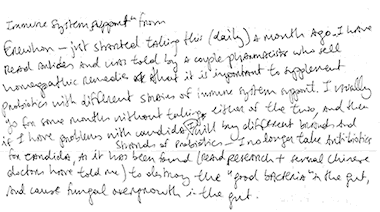 Immune System Support" from
Erewhon – just started taking this (daily) a month ago. I have
read articles and was told by a couple pharmacists who sell
homeopathic remedies that it is important to supplement
probiotics with different strains of immune system support. I usually
go for some months without taking either of the two, and then
if I have problems with candida, I will buy different brands and
strands of probiotics – I no longer take antibiotics
for candida, as it has been found (read research + several Chinese
doctors have told me) to destroy the "good bacteria" in the gut,
and cause fungal overgrowth in the gut.